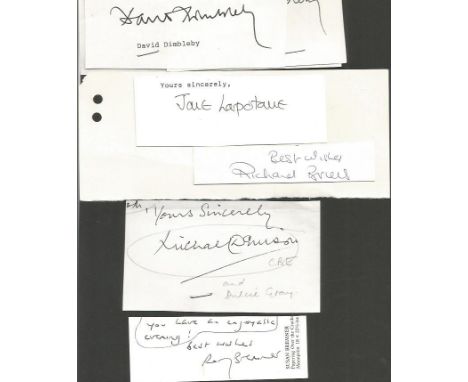 David Dimbleby
David Dimbleby
Yours sincerely,
Jane Lapotaire
Best wishes
Richard Briers
Yours Sincerely
Michael Denison
CBE
and
Dulcie Gray
You have an enjoyable
evening!
Best wishes
SUSAN BREMNER